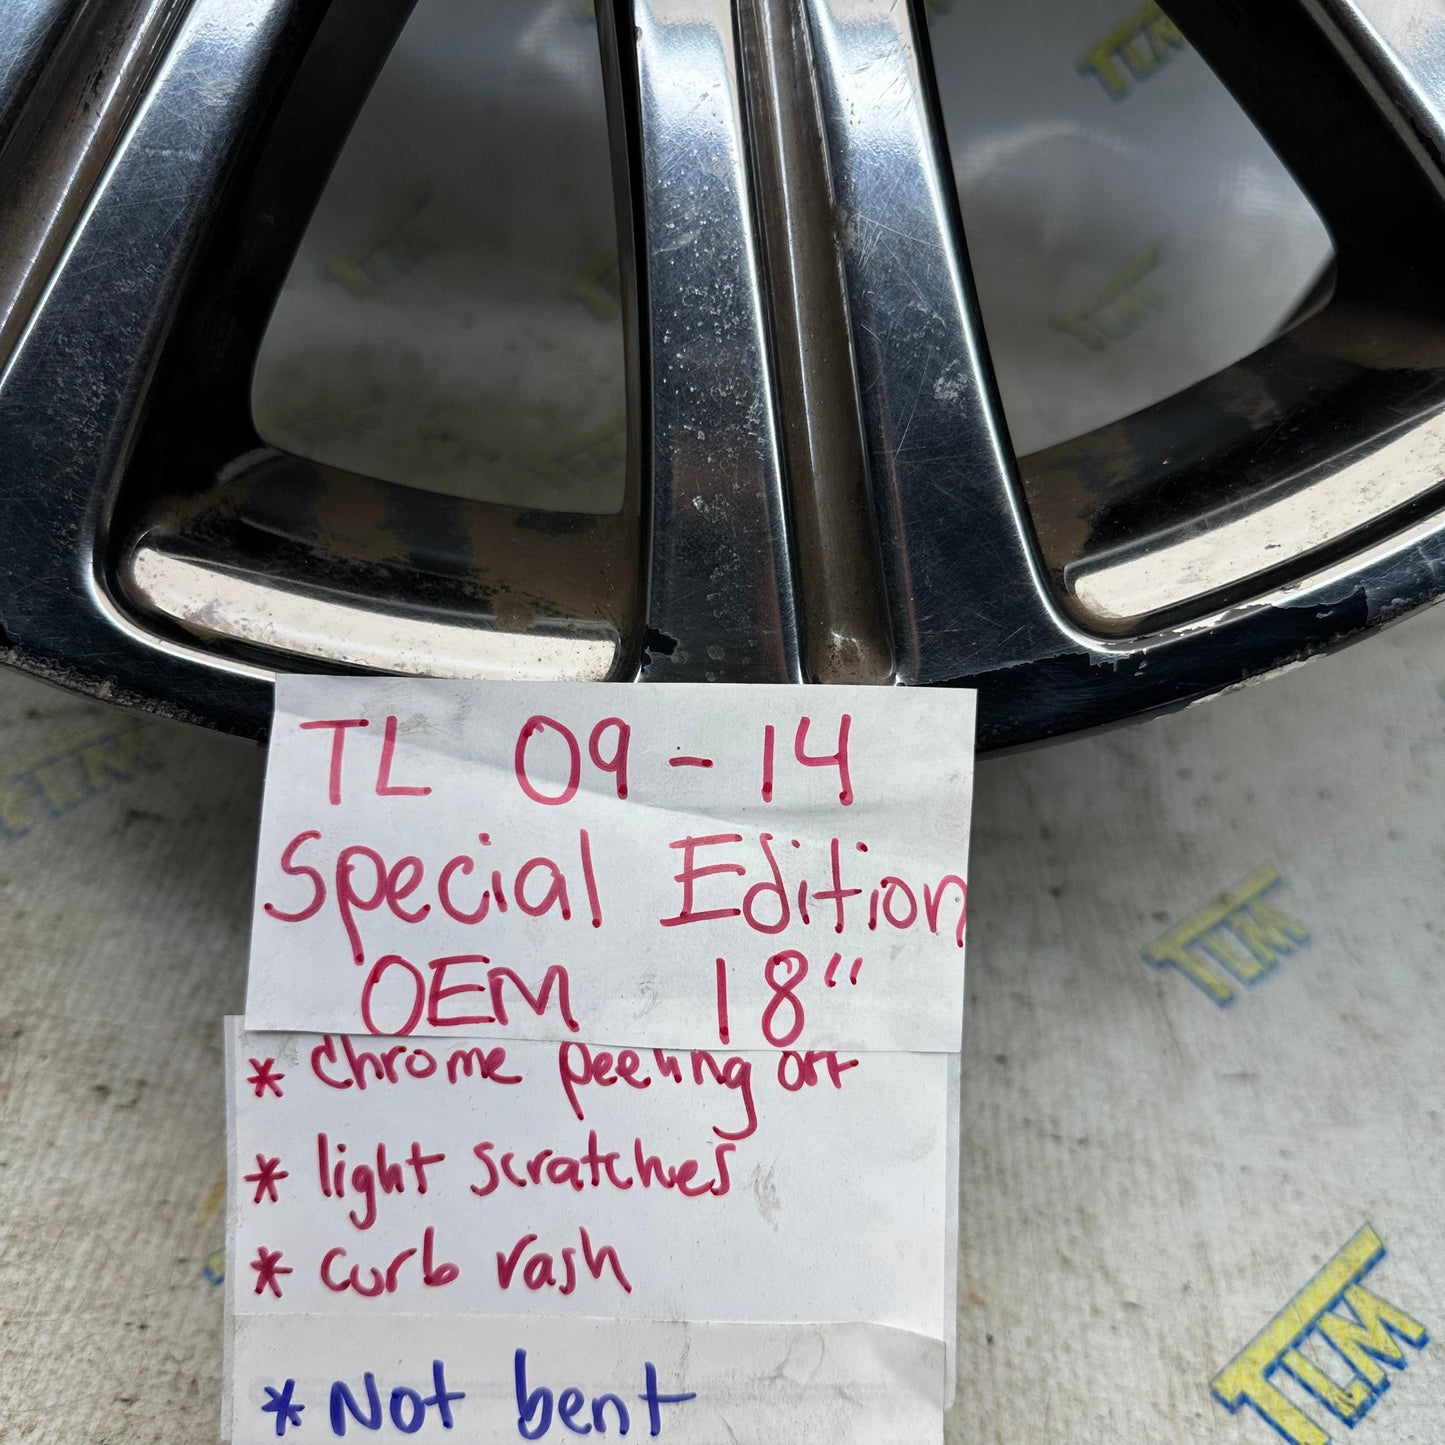 TLM
TLM
TL 09-14
Special Edition
OEM 18"
* Chrome peeling off
* light scratches
* curb rash
* Not bent
TLM
TLM
TLM